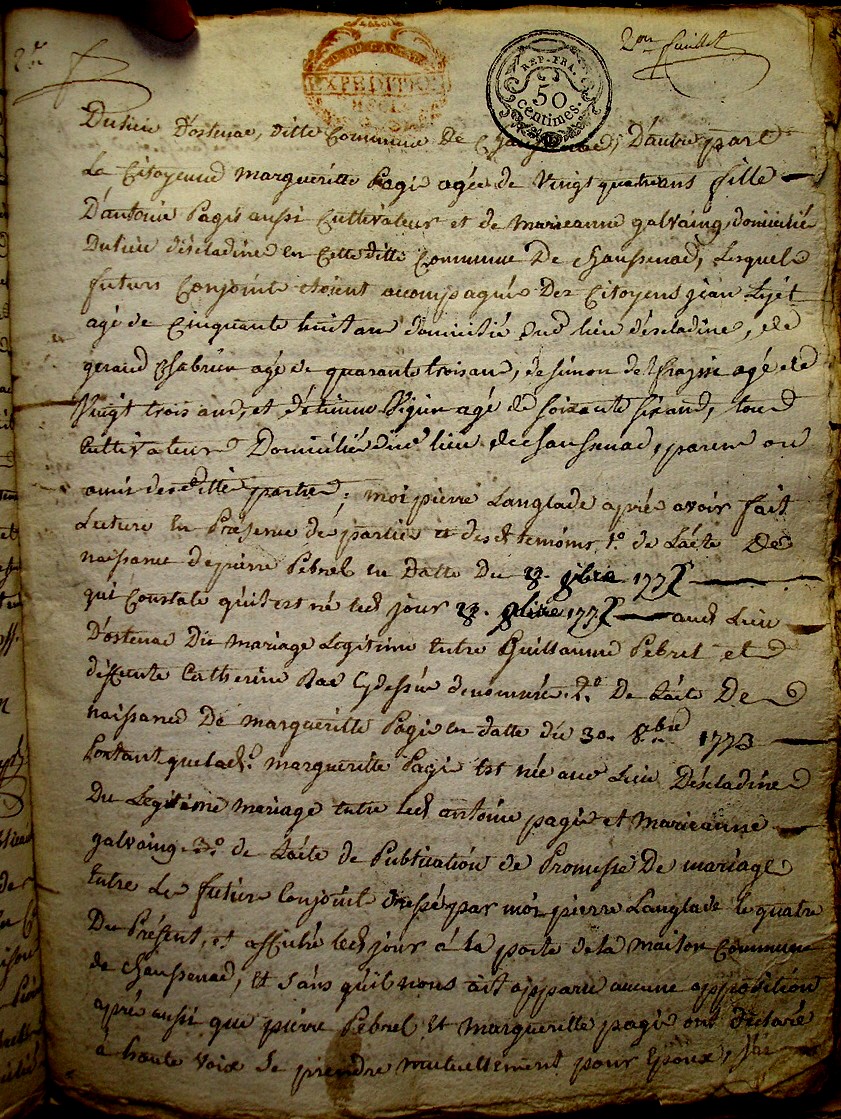 2e
2em feuillet
DU CANTAL
EXPEDITION
REP. FRA.
50
centimes.
Du lieu D'ostenac, ditte Commune De Chaussenac, D'autre part
La Citoyenne margueritte Pagis agée de Vingt quatre ans fille
D'antoine Pagis aussi Cultivateur et de marieanne galvaing domicilié
Du lieu descladines en Cette ditte Commune De chaussenac, Lesquels
futurs Conjoints etoient acompagnés Des Citoyens jean
agé de Cinquante huit ans domicilié dud lieu descladines, de
geraud Chabrier agé de quarante trois ans, de simon agé de
Vingt trois ans, et d'étienne Vigier agé de soixante six ans, tous
Cultivateurs Domiciliés lieu de chaussenac, parens ou
amis desd ditte parties; moi pierre Langlade aprés avoir fait
Lecture en Presence des parties et desd temoins 1o. de L'acte De
naissance de pierre Pebrel en Datte Du 23. 9bre 177
qui Constate qu'il est né led jour 23. 9bre 177 aud Lieu
D'ostenac Du mariage Legitime Entre Guillaume Pebrel et
deffunte Catherine Cydessus denommés. 2o. De L'acte De
naissance De margueritte Pagis en datte du 30. 8bre 1773
Portant que lade. margueritte Pagis Est née aud Lieu Descladines
Du Legitime mariage entre led antoine pagis et marieanne
galvaing. 3o. de L'acte de Publication de Promesse De mariage
Entre Les futurs Conjoints dressé par moi pierre Langlade le quatre
Du Présent, et affiché led jour á la porte de la maison Commune
de chaussenac, et sans qu'il nous ait apparu aucune opposition
aprés aussi que pierre Pebrel Et margueritte pagis ont Déclaré
á haute voix se prendre mutuellement pour Epoux,